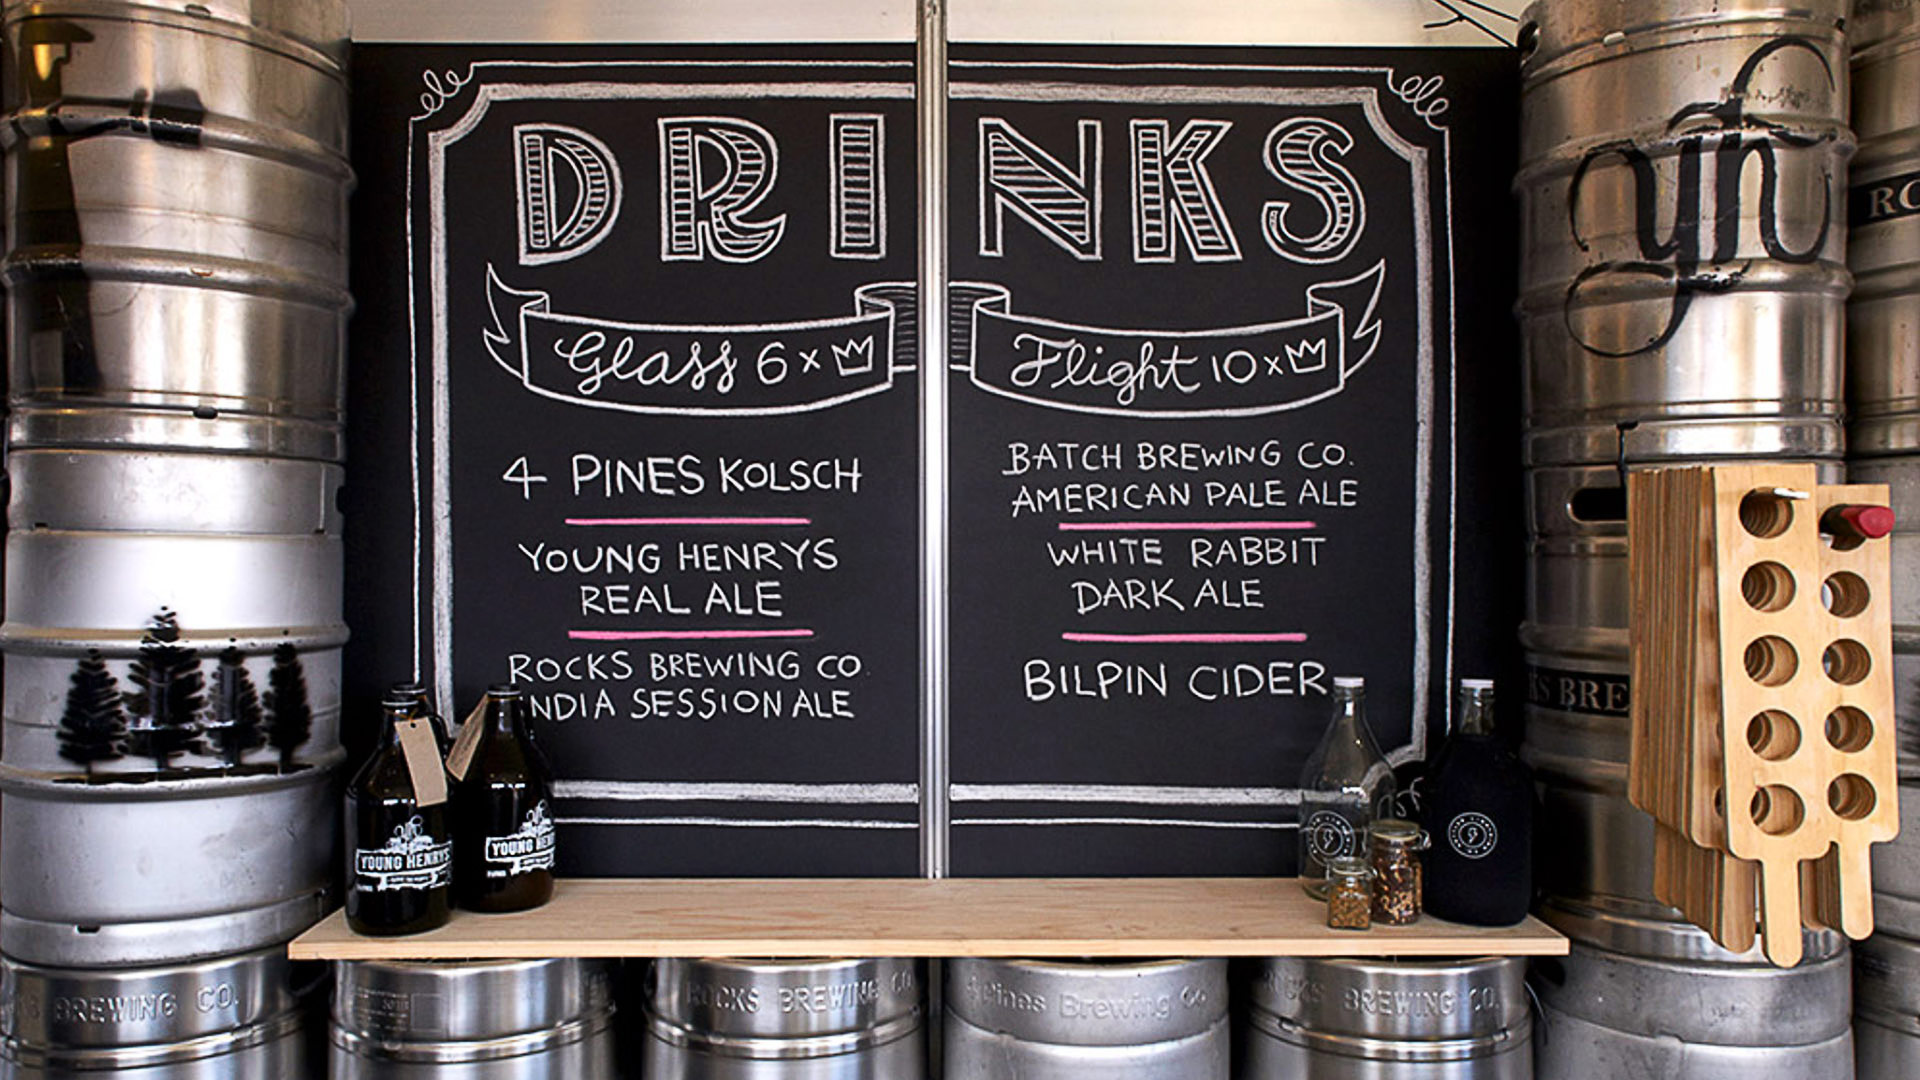 DRINKS
Glass 6x
Flight 10x
4 PINES KOLSCH
YOUNG HENRYS
REAL ALE
ROCKS BREWING CO.
NDIA SESSION ALE
BATCH BREWING CO.
AMERICAN PALE ALE
WHITE RABBIT
DARK ALE
BILPIN CIDER
yh
RO
S BRE
YOUNG HENRYS
YOUNG HE
BREWING CO.
ROCKS BREWING CO
4 Pines Brewing Co
ROCKS BREWING CO.